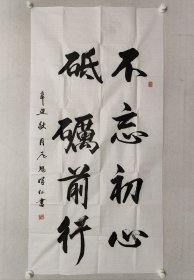 不忘初心
砥礪前行
辛丑秋月